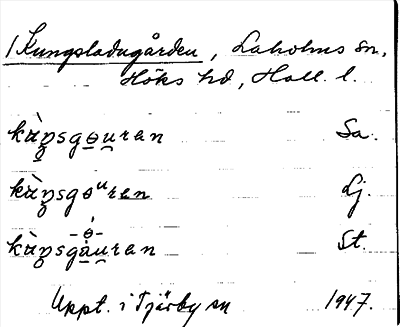 /Kungsladugården, Laholms sn,
Höks hd, Hall. l.
kὰŋsgɵuran Sa.
kὰŋsgɵuran Lj.
-ɵ́-
kὰŋsgàuran St.
Uppt. i Tjärby sn 1947.